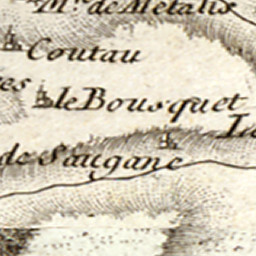 Mn. de Metalis
Coutau
es
le Bousquet
La
de Saugane